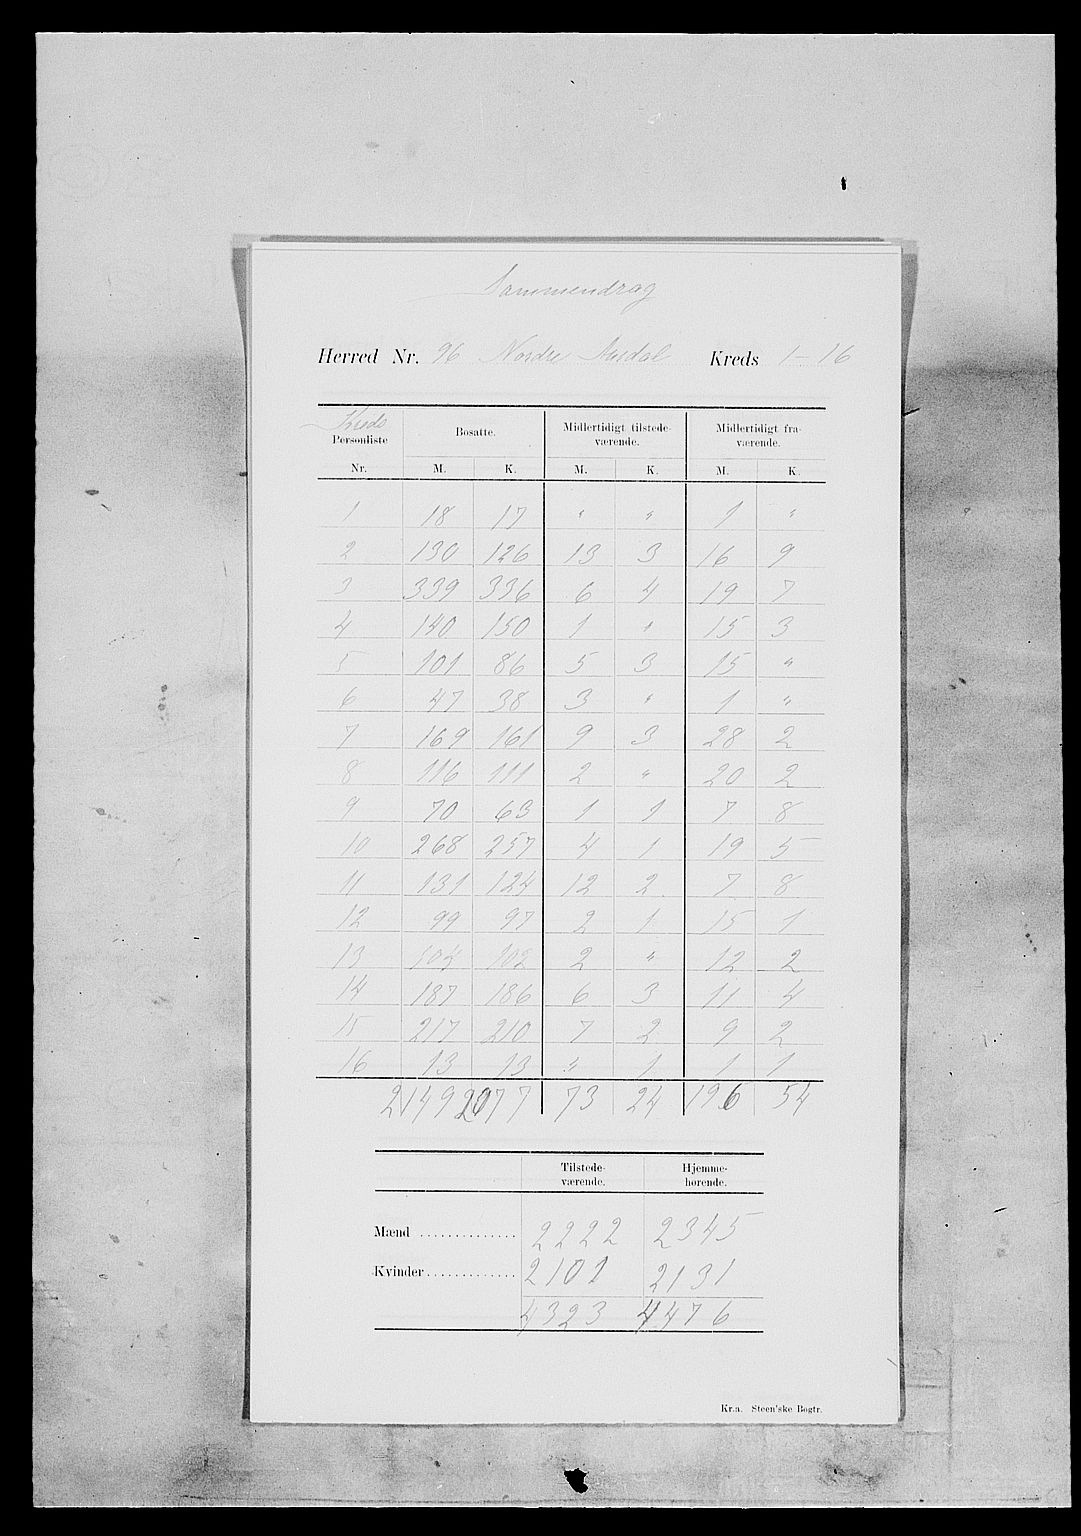 Sammendrag
Herred Nr. 96 Nordre Aurdal Kreds 1-16
Kreds
Personliste Bosatte. Midlertidigt tilstede- Midlertidigt fra-
værende. værende.
Nr. M. K. M. K. M. K.
1 18 17 " " 1 "
2 130 126 13 3 16 9
3 339 336 6 4 19 7
4 140 150 1 " 15 3
5 101 86 5 3 15 "
6 47 38 3 " 1 "
7 169 161 9 3 28 2
8 116 111 2 " 20 2
9 70 63 1 1 7 8
10 268 257 4 1 19 5
11 131 124 12 2 7 8
12 99 97 2 1 15 1
13 104 102 2 " 12 2
14 187 186 6 3 11 4
15 217 210 7 2 9 2
16 13 13 " 1 1 1
2149 2077 73 24 196 54
Tilstede- Hjemme-
værende. hørende.
Mænd .............. 2222 2345
Kvinder............. 2101 2131
4323 4476
Kr.a. Steen'ske Bogtr.